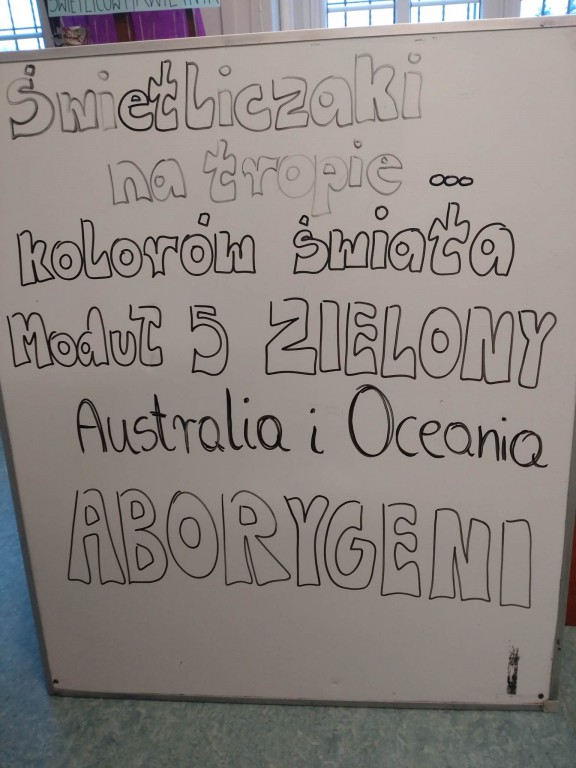 Świetliczaki
na tropie ...
kolorów świata
Moduł 5 ZIELONY
Australia i Oceania
ABORYGENI